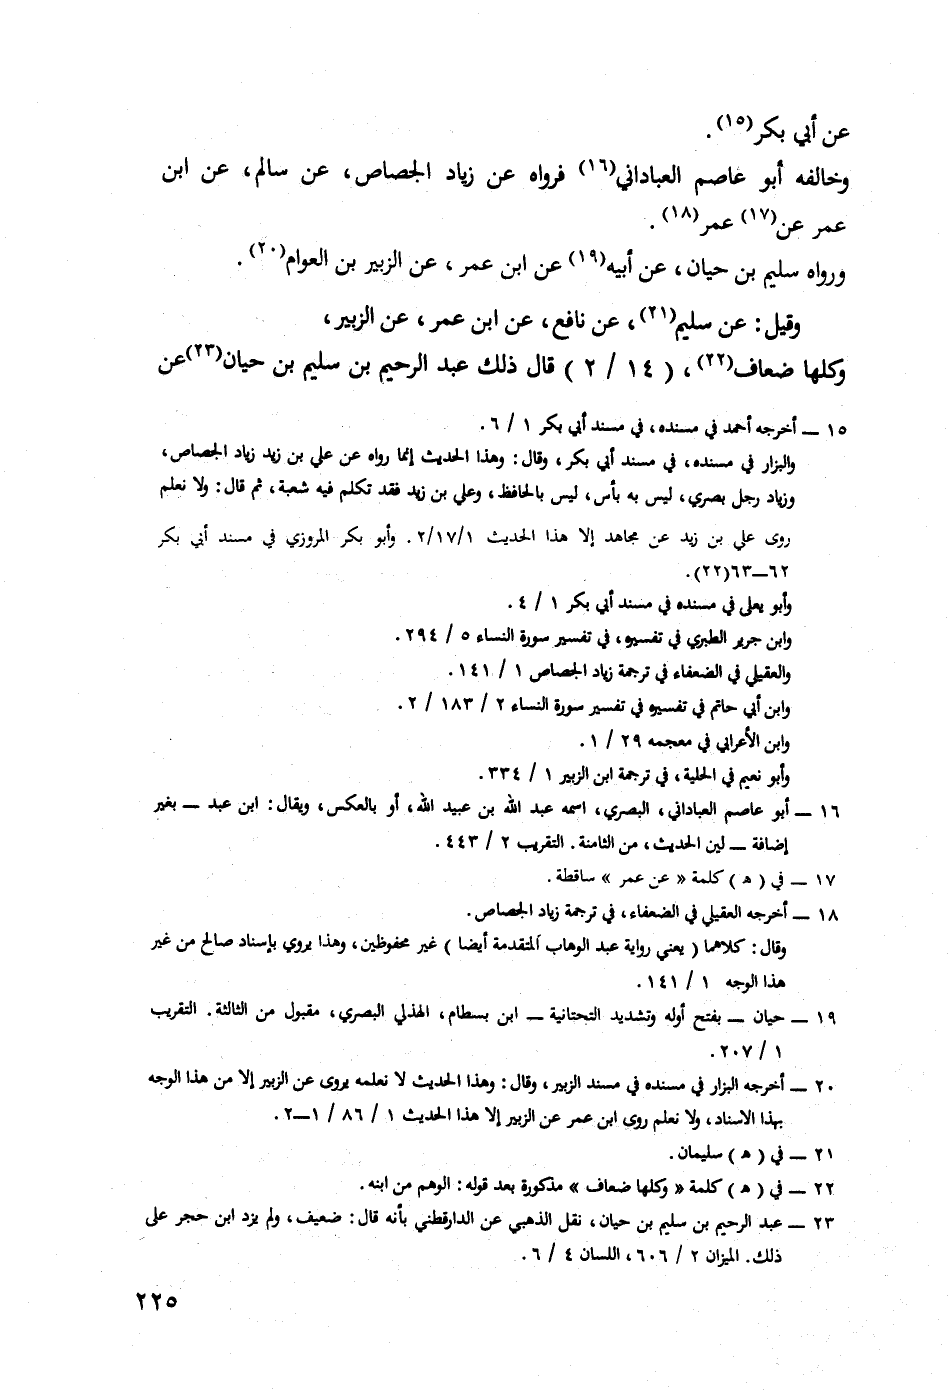 عن أبي بكر(١٥).
وخالفه أبو عاصم العباداني(١٦) فرواه عن زياد الجصاص، عن سالم، عن ابن
عمر عن(١٧) عمر(١٨).
ورواه سليم بن حيان، عن أبيه(١٩) عن ابن عمر، عن الزبير بن العوام(٢٠).
وقيل: عن سليم(٢١)، عن نافع، عن ابن عمر، عن الزبير،
وكلها ضعاف(٢٢)، ( ١٤ / ٢ ) قال ذلك عبد الرحيم بن سليم بن حيان(٢٣)عن
١٥ ــ أخرجه أحمد في مسنده، في مسند أبي بكر ١ / ٦.
والبزار في مسنده، في مسند أبي بكر، وقال: وهذا الحديث إنما رواه عن علي بن زيد زياد الجصاص،
وزياد رجل بصري، ليس به بأس، ليس بالحافظ، وعلي بن زيد فقد تكلم فيه شعبة، ثم قال: ولا نعلم
روى علي بن زيد عن مجاهد إلا هذا الحديث ٢/١٧/١. وأبو بكر المروزي في مسند أبي بكر
٦٢ــ٦٣(٢٢).
وأبو يعلى في مسنده في مسند أبي بكر ١ / ٤.
وابن جرير الطبري في تفسيره، في تفسير سورة النساء ٥ / ٢٩٤.
والعقيلي في الضعفاء في ترجمة زياد الجصاص ١ / ١٤١.
وابن أبي حاتم في تفسيره في تفسير سورة النساء ٢ / ١٨٣ / ٢.
وابن الأعرابي في معجمه ٢٩ / ١.
وأبو نعيم في الحلية، في ترجمة ابن الزبير ١ / ٣٣٤.
١٦ ــ أبو عاصم العباداني، البصري، اسمه عبد الله بن عبيد الله، أو بالعكس، ويقال: ابن عبد ــ بغير
إضافة ــ لين الحديث، من الثامنة. التقريب ٢ / ٤٤٣.
١٧ ــ في ( هـ ) كلمة « عن عمر » ساقطة.
١٨ ــ أخرجه العقيلي في الضعفاء، في ترجمة زياد الجصاص.
وقال: كلاهما ( يعني رواية عبد الوهاب المتقدمة أيضا ) غير محفوظين، وهذا يروي بإسناد صالح من غير
هذا الوجه ١ / ١٤١.
١٩ ــ حيان ــ بفتح أوله وتشديد التحتانية ــ ابن بسطام، الهذلي البصري، مقبول من الثالثة. التقريب
١ / ٢٠٧.
٢٠ ــ أخرجه البزار في مسنده في مسند الزبير، وقال: وهذا الحديث لا نعلمه يروى عن الزبير إلا من هذا الوجه
بهذا الاسناد، ولا نعلم روى ابن عمر عن الزبير إلا هذا الحديث ١ / ٨٦ / ١ــ٢.
٢١ ــ في ( هـ ) سليمان.
٢٢ ــ في ( هـ ) كلمة « وكلها ضعاف » مذكورة بعد قوله: الوهم من ابنه.
٢٣ ــ عبد الرحيم بن سليم بن حيان، نقل الذهبي عن الدارقطني بأنه قال: ضعيف، ولم يزد ابن حجر على
ذلك. الميزان ٢ / ٦٠٦، اللسان ٤ / ٦.
٢٢٥